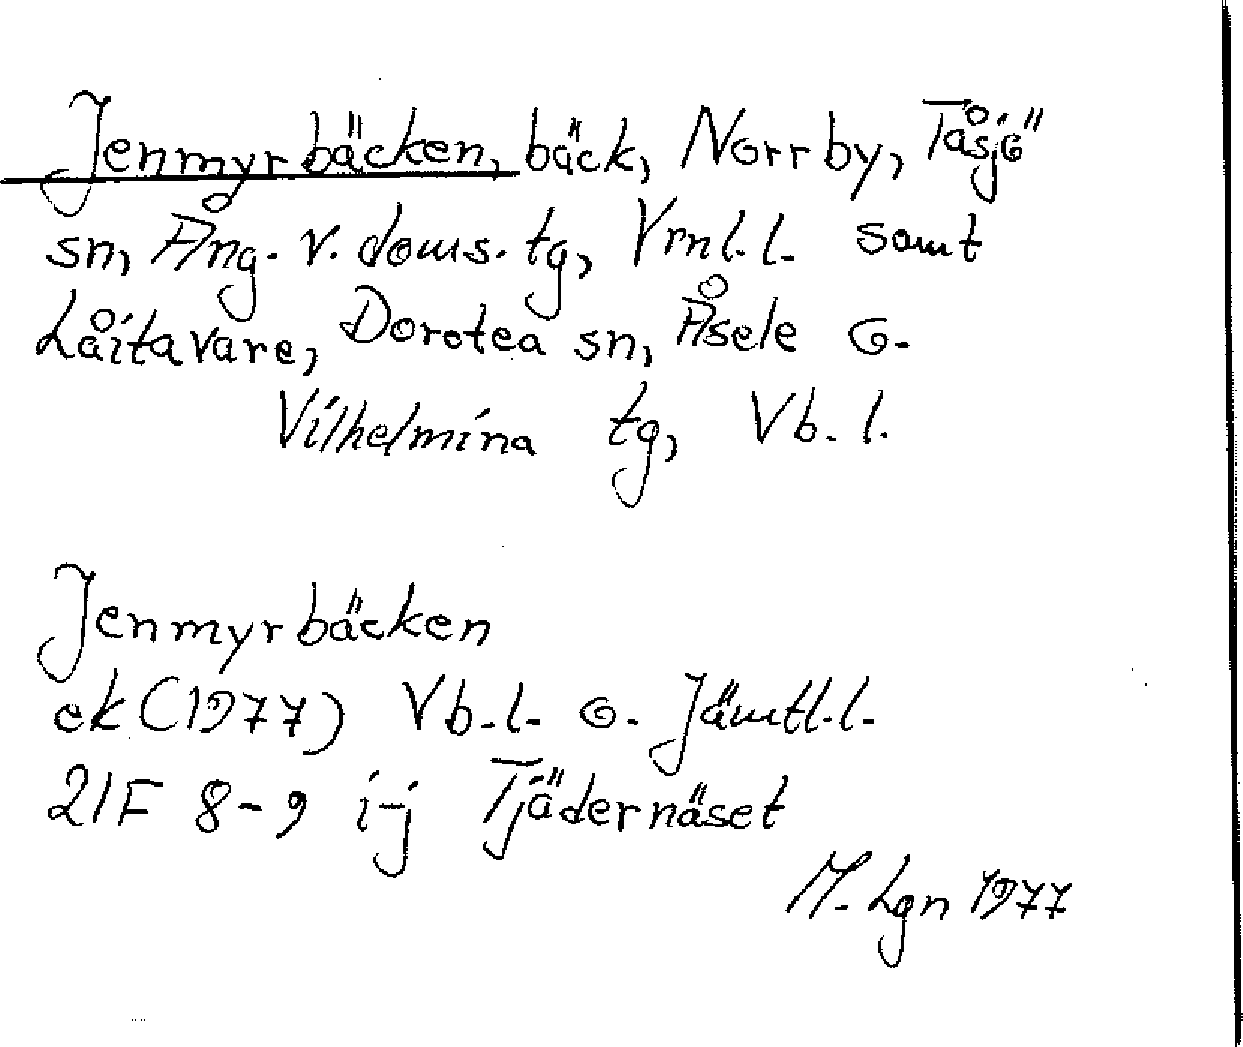 Jenmyrbäcken, bäck, Norrby, Tåsjö
sn, Ång. v. doms. tg, Vrnl. l. samt
Låitavare, Dorotea sn, Åsele o.
Vilhelmina tg, Vb. l.
Jenmyrbäcken
ek (1977) Vb. l. o. Jämtl. l.
21F 8-9 i-j Tjädernäset
M. Lgn 1977